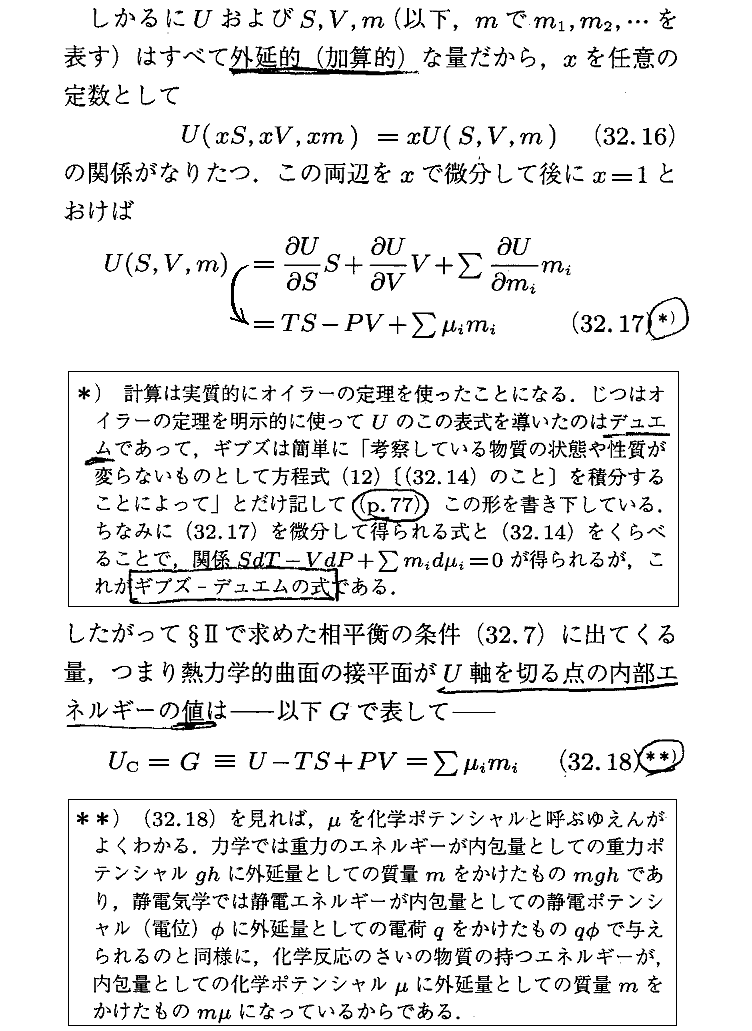 しかるに U および S, V, m (以下, m で m₁, m₂, … を
表す) はすべて外延的（加算的）な量だから, x を任意の
定数として
U(xS, xV, xm) = xU(S, V, m) (32.16)
の関係がなりたつ. この両辺を x で微分して後に x=1 と
おけば
U(S, V, m) = ∂U/∂S S + ∂U/∂V V + ∑ ∂U/∂mᵢ mᵢ
= TS − PV + ∑ μᵢmᵢ (32.17)*)
*) 計算は実質的にオイラーの定理を使ったことになる. じつはオ
イラーの定理を明示的に使って U のこの表式を導いたのはデュエ
ムであって, ギブズは簡単に「考察している物質の状態や性質が
変らないものとして方程式 (12)〔(32.14) のこと〕を積分する
ことによって」とだけ記して (p.77) この形を書き下している.
ちなみに (32.17) を微分して得られる式と (32.14) をくらべ
ることで, 関係 SdT − VdP + ∑ mᵢdμᵢ = 0 が得られるが, こ
れがギブズ-デュエムの式である.
したがって §Ⅱ で求めた相平衡の条件 (32.7) に出てくる
量, つまり熱力学的曲面の接平面が U 軸を切る点の内部エ
ネルギーの値は——以下 G で表して——
U_C = G ≡ U − TS + PV = ∑ μᵢmᵢ (32.18)**)
**) (32.18) を見れば, μ を化学ポテンシャルと呼ぶゆえんが
よくわかる. 力学では重力のエネルギーが内包量としての重力ポ
テンシャル gh に外延量としての質量 m をかけたもの mgh であ
り, 静電気学では静電エネルギーが内包量としての静電ポテンシ
ャル（電位）φ に外延量としての電荷 q をかけたもの qφ で与え
られるのと同様に, 化学反応のさいの物質の持つエネルギーが,
内包量としての化学ポテンシャル μ に外延量としての質量 m を
かけたもの mμ になっているからである.